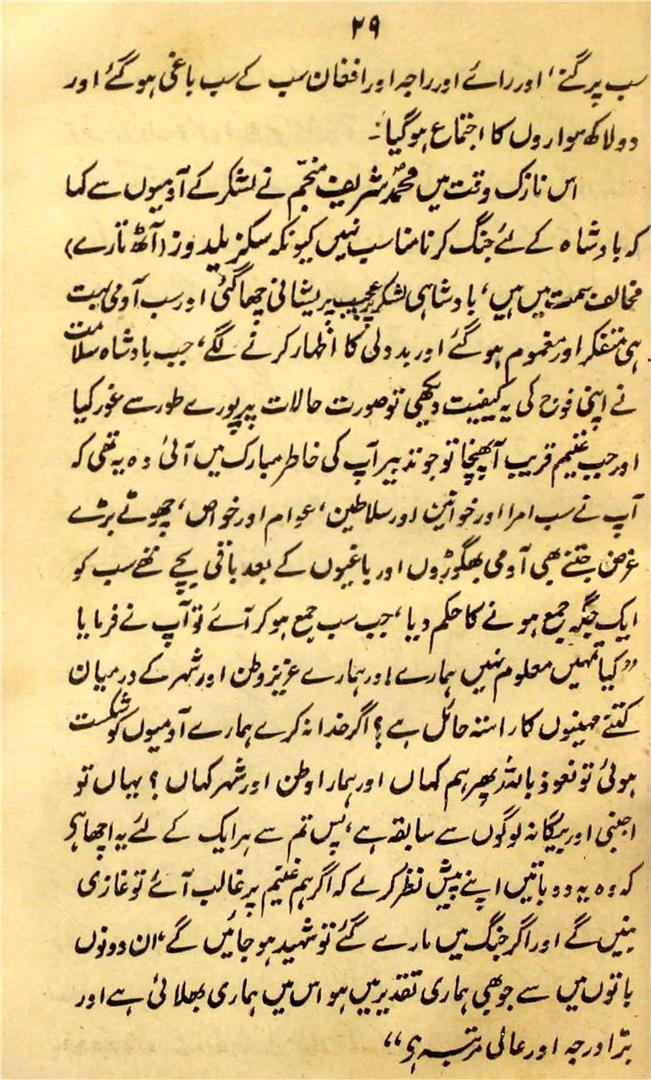 ۲۹
سب پرگنے، اور رائے اور راجہ اور افغان سب کے سب باغی ہو گئے اور
دو لاکھ سواروں کا اجتماع ہو گیا:۔
اس نازک وقت میں محمد شریف منجّم نے لشکر کے آدمیوں سے کہا
کہ بادشاہ کے لئے جنگ کرنا مناسب نہیں کیونکہ سکز یلدوز (آٹھ تارے)
مخالف سمت میں ہیں، بادشاہی لشکر پر عجیب پریشانی چھا گئی اور سب آدمی بہت
ہی متفکر اور مغموم ہو گئے اور بددلی کا اظہار کرنے لگے، جب بادشاہ سلامت
نے اپنی فوج کی یہ کیفیت دیکھی تو صورت حالات پر پورے طور سے غور کیا
اور جب غنیم قریب آ پہنچا تو جو تدبیر آپ کی خاطر مبارک میں آئی وہ یہ تھی کہ
آپ نے سب امرا اور خوانین اور سلاطین، عوام اور خواص، چھوٹے بڑے
غرض جتنے بھی آدمی بھگوڑوں اور باغیوں کے بعد باقی بچے تھے سب کو
ایک جگہ جمع ہونے کا حکم دیا، جب سب جمع ہو کر آئے تو آپ نے فرمایا
”کیا تمہیں معلوم نہیں ہمارے اور ہمارے عزیز وطن اور شہر کے درمیان
کتنے مہینوں کا راستہ حائل ہے؟ اگر خدا نہ کرے ہمارے آدمیوں کو شکست
ہوئی تو نعوذ باللہ پھر ہم کہاں اور ہمارا وطن اور شہر کہاں؟ یہاں تو
اجنبی اور بیگانہ لوگوں سے سابقہ ہے، پس تم سے ہر ایک کے لئے یہ اچھا ہے
کہ وہ یہ دو باتیں اپنے پیش نظر کر لے کہ اگر ہم غنیم پر غالب آئے تو غازی
بنیں گے اور اگر جنگ میں مارے گئے تو شہید ہو جائیں گے، ان دونوں
باتوں میں سے جو بھی ہماری تقدیر میں ہو اس میں ہماری بھلائی ہے اور
بڑا درجہ اور عالی مرتبہ ہے“